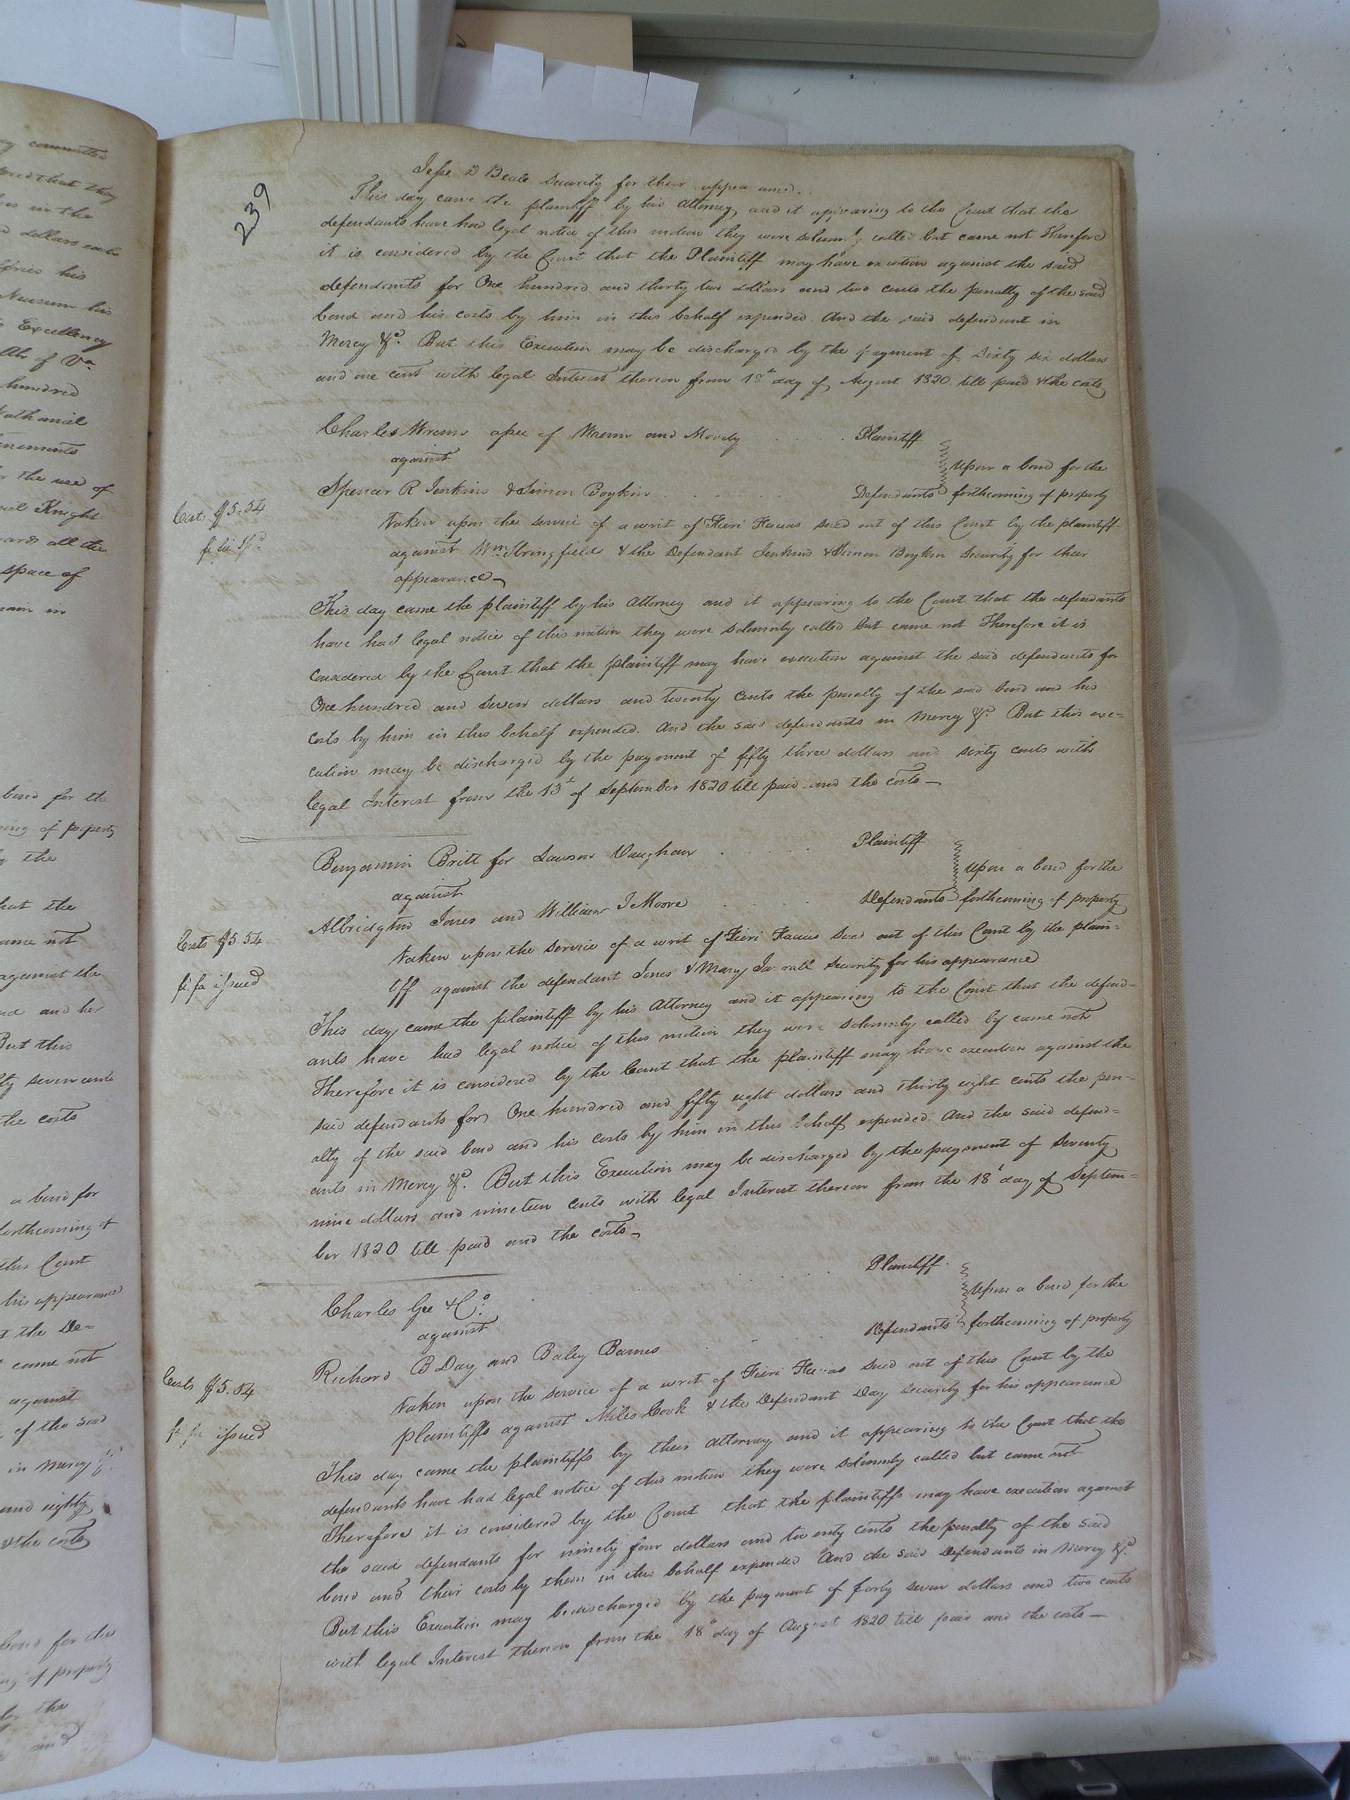 239
Jesse D Beale security for their appearance.
This day came the plaintiff by his Attorney, and it appearing to the Court that the
defendants have had legal notice of this motion they were solemnly called but came not Therefore
it is considered by the Court that the Plaintiff may have execution against the said
defendants for One hundred and thirty two dollars and two cents the penalty of the said
bond and his costs by him in this behalf expended And the said defendant in
Mercy &c. But this Execution may be discharged by the payment of Sixty six dollars
and one cent with legal Interest thereon from 18th day of August 1820 till paid & the costs
Charles Wrenn of Wrenn and Moody Plaintiff
against
Upon a bond for the
Spencer R Jenkins & Simon Boykin Defendants forthcoming of property
Cost $5.54
taken upon the service of a writ of Fieri Facias sued out of this Court by the plaintiff
against Wm Stringfield & the Defendant Jenkins & Simon Boykin Security for their
appearance
This day came the plaintiff by his Attorney and it appearing to the Court that the defendants
have had legal notice of this motion they were solemnly called but came not Therefore it is
considered by the Court that the plaintiff may have execution against the said defendants for
One hundred and seven dollars and twenty cents the penalty of the said bond and his
costs by him in this behalf expended. And the said defendants in Mercy &c. But this exe=
cution may be discharged by the payment of fifty three dollars and sixty cents with
legal Interest from the 13t of September 1820 till paid and the costs
Benjamin Britt for Lawson Vaughan Plaintiff
against
Upon a bond for the
Albridgton Jones and William J Moore Defendants forthcoming of property
Costs $5.54
fi fa issued
taken upon the service of a writ of Fieri Facias sued out of this Court by the plain=
tiff against the defendant Jones & Mary security for his appearance
This day came the plaintiff by his Attorney and it appearing to the Court that the defend=
ants have had legal notice of this motion they were solemnly called by came not
Therefore it is considered by the Court that the plaintiff may have execution against the
said defendants for One hundred and fifty eight dollars and thirty eight cents the pen=
alty of the said bond and his costs by him in this behalf expended And the said defend=
ants in Mercy &c. But this Execution may be discharged by the payment of Seventy
nine dollars and nineteen cents with legal Interest thereon from the 18t day of Septem=
ber 1820 till paid and the costs
Charles Gee & Co. Plaintiff
against
Upon a bond for the
Richard B Day and Baley Barnes Defendants forthcoming of property
Costs $5.54
fi fa issued
taken upon the service of a writ of Fieri Facias sued out of this Court by the
plaintiffs against Miles Cook & the Defendant Day security for his appearance
This day came the plaintiffs by their Attorney and it appearing to the Court that the
defendants have had legal notice of this motion they were solemnly called but came not
Therefore it is considered by the Court that the plaintiffs may have execution against
the said defendants for ninety four dollars and twenty cents the penalty of the said
bond and their costs by them in this behalf expended And the said Defendants in Mercy &c.
But this Execution may be discharged by the payment of forty seven dollars and two cents
with legal Interest thereon from the 18 day of August 1820 till paid and the costs